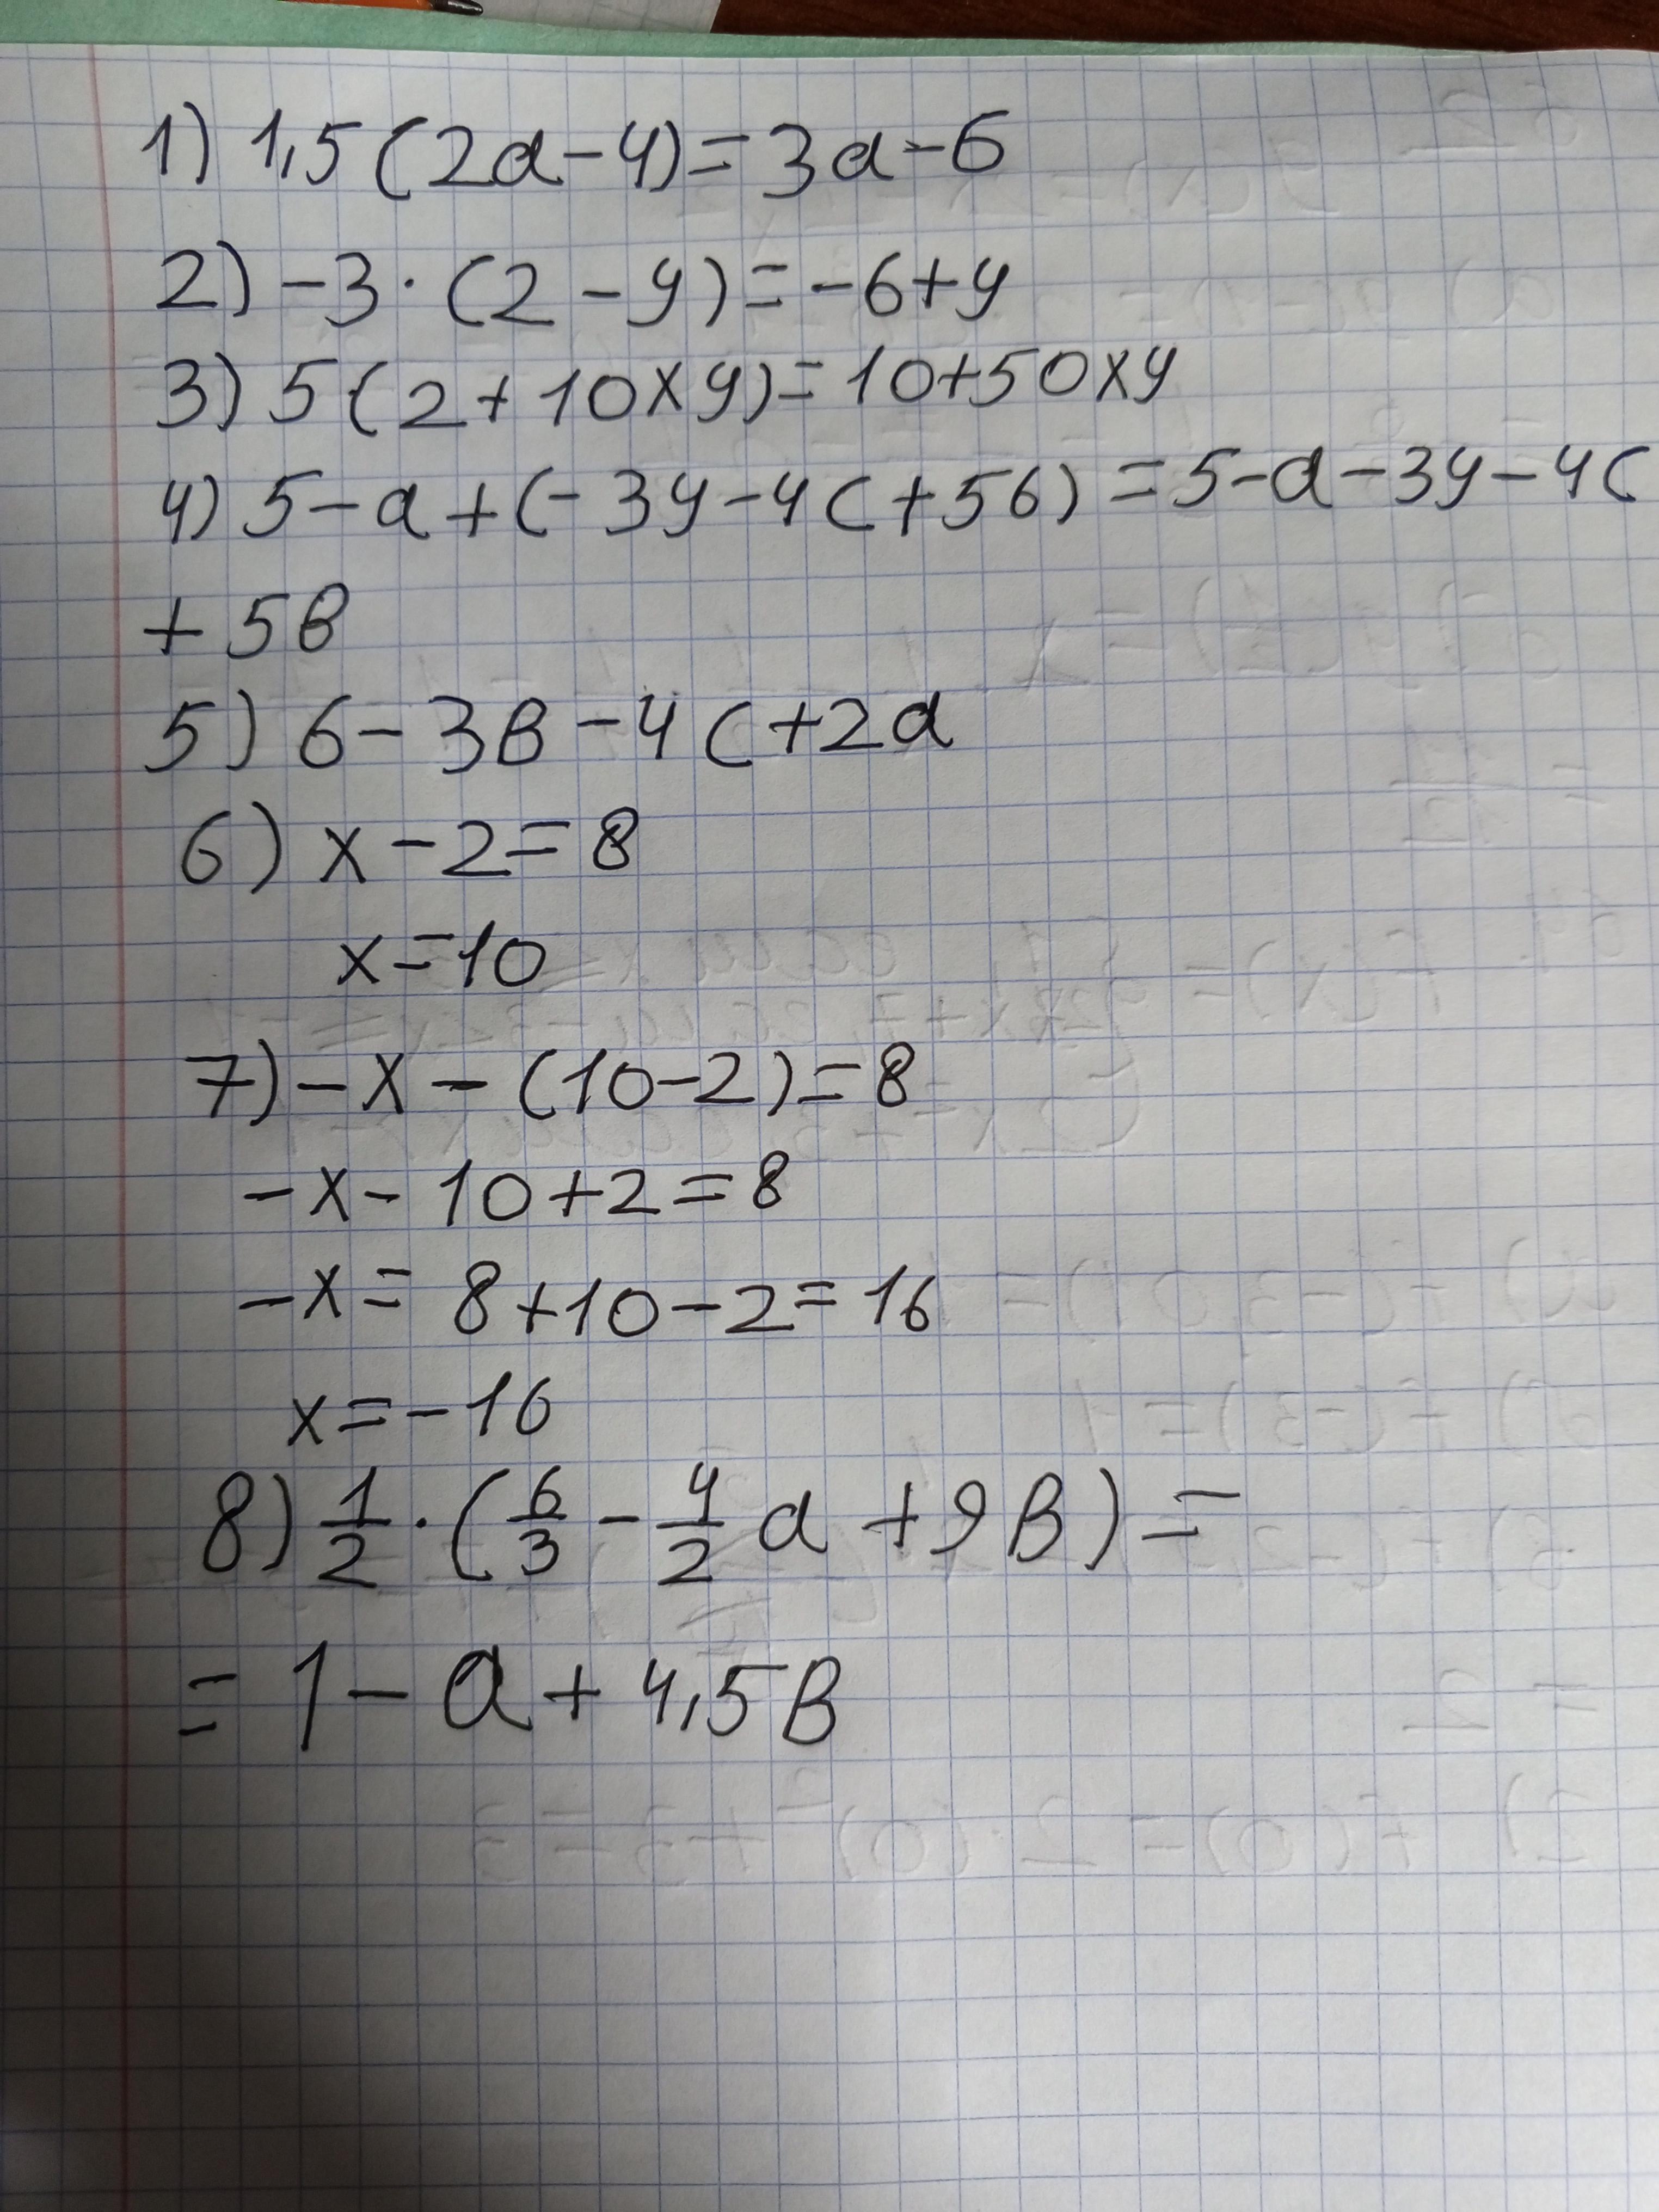 1) 1,5(2a-4)=3a-6
2) -3·(2-y)=-6+y
3) 5(2+10xy)=10+50xy
4) 5-a+(-3y-4c+5б)=5-a-3y-4c
+5в
5) 6-3в-4c+2a
6) x-2=8
x=10
7) -x-(10-2)=8
-x-10+2=8
-x=8+10-2=16
x=-16
8) 1/2·(6/3-4/2a+9в)=
=1-a+4,5в